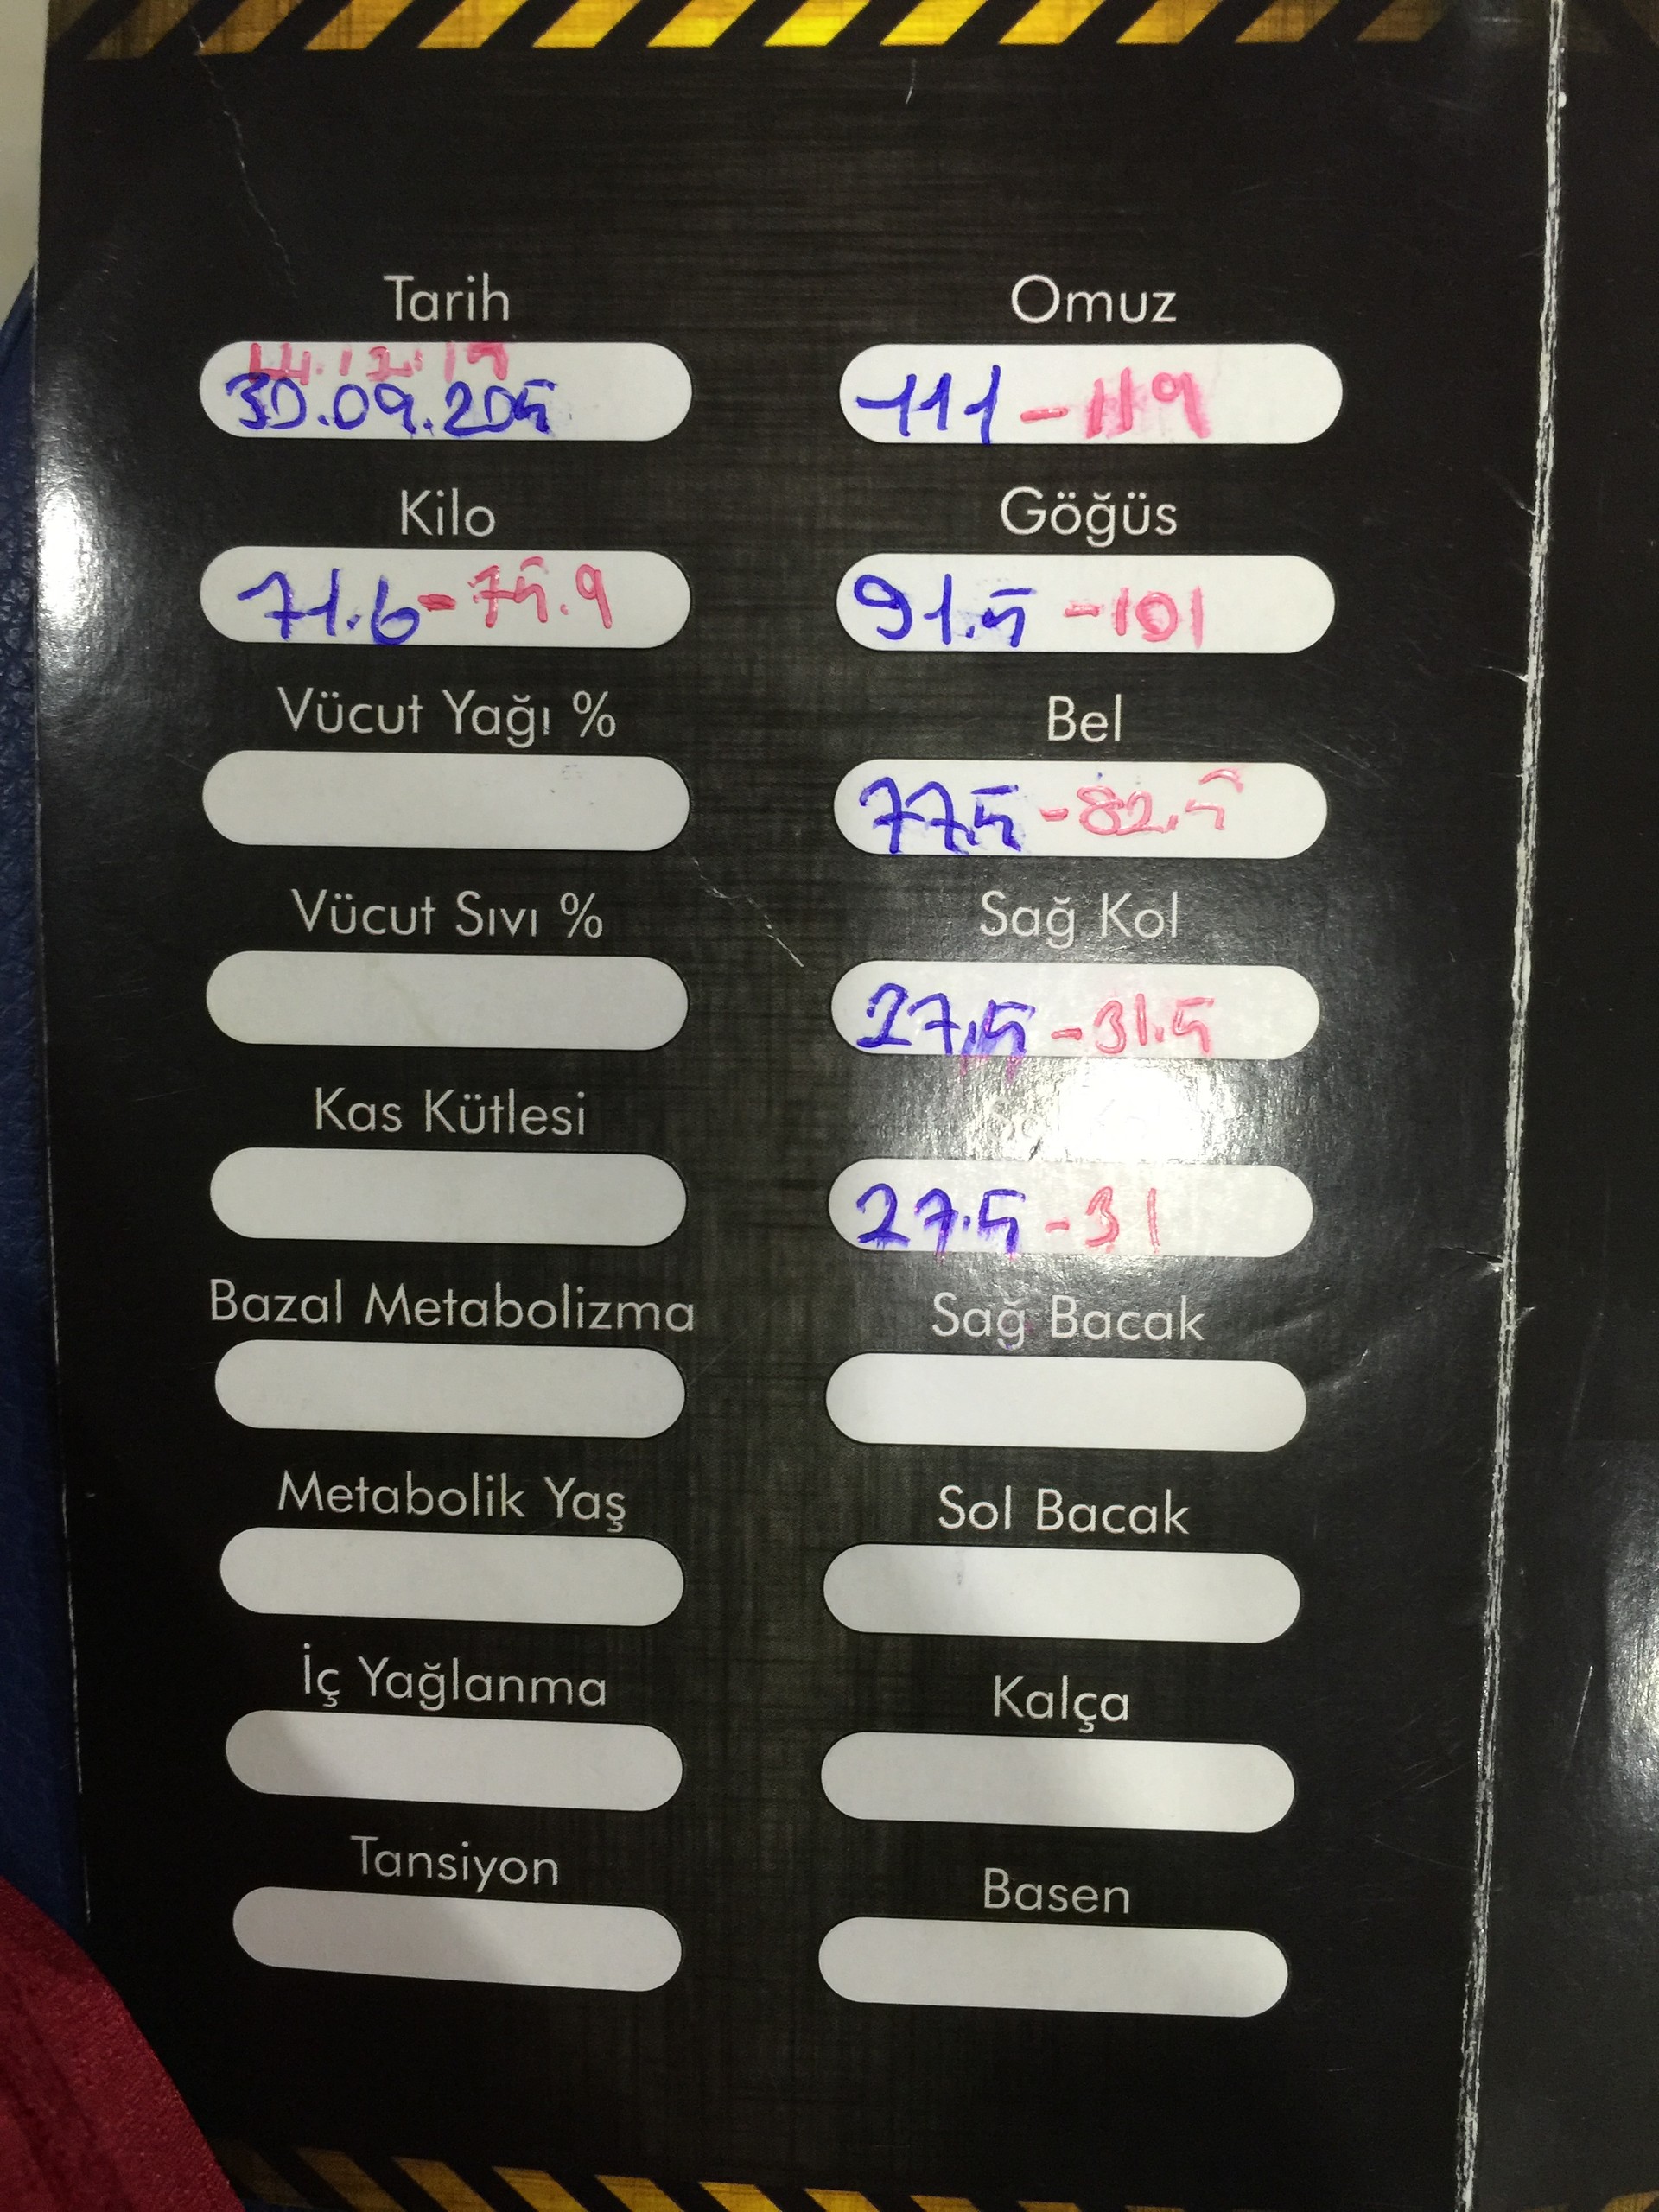 Tarih
30.09.205
Kilo
71.6-75.9
Vücut Yağı %
Vücut Sıvı %
Kas Kütlesi
Bazal Metabolizma
Metabolik Yaş
İç Yağlanma
Tansiyon
Omuz
111-119
Göğüs
91.5-101
Bel
77.5-82.5
Sağ Kol
27,5-31.5
Sol Kol
27.5-31
Sağ Bacak
Sol Bacak
Kalça
Basen